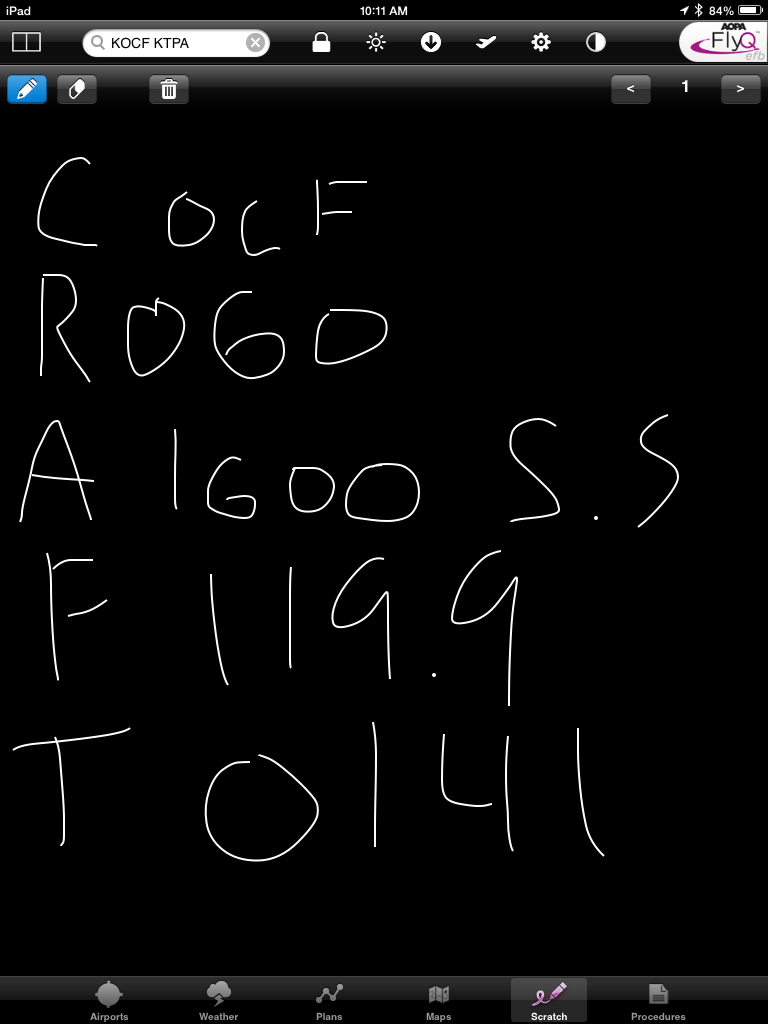 iPad 10:11 AM 84%
KOCF KTPA AOPA FlyQ efb
< 1 >
C OCF
R 060
A 1600 5.5
F 119.9
T 0141
Airports Weather Plans Maps Scratch Procedures